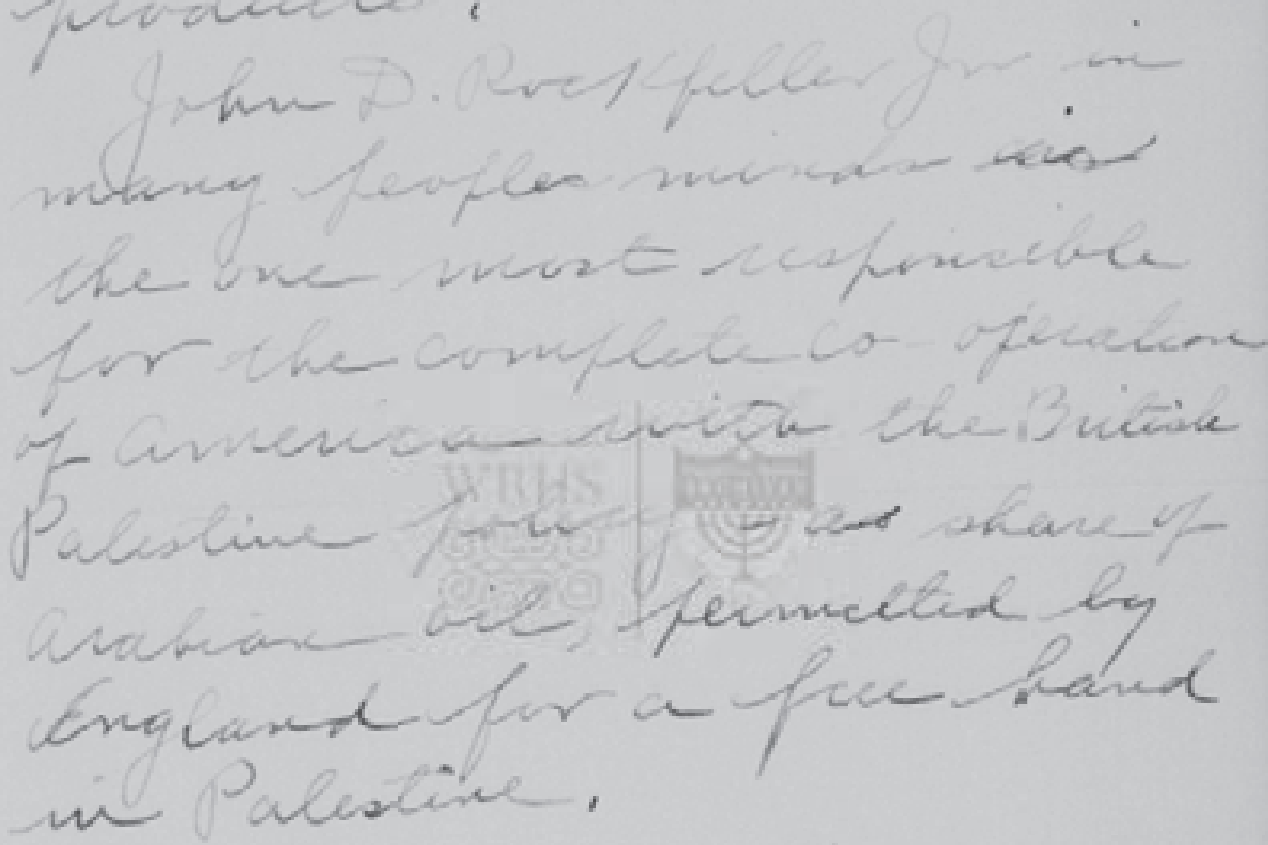 products.
John D. Rockfeller Jr in
many peoples minds is
the one most responsible
for the complete co-operation
of America with the British
Palestine policy as share of
Arabian oil, permitted by
England for a free hand
in Palestine.
WRHS